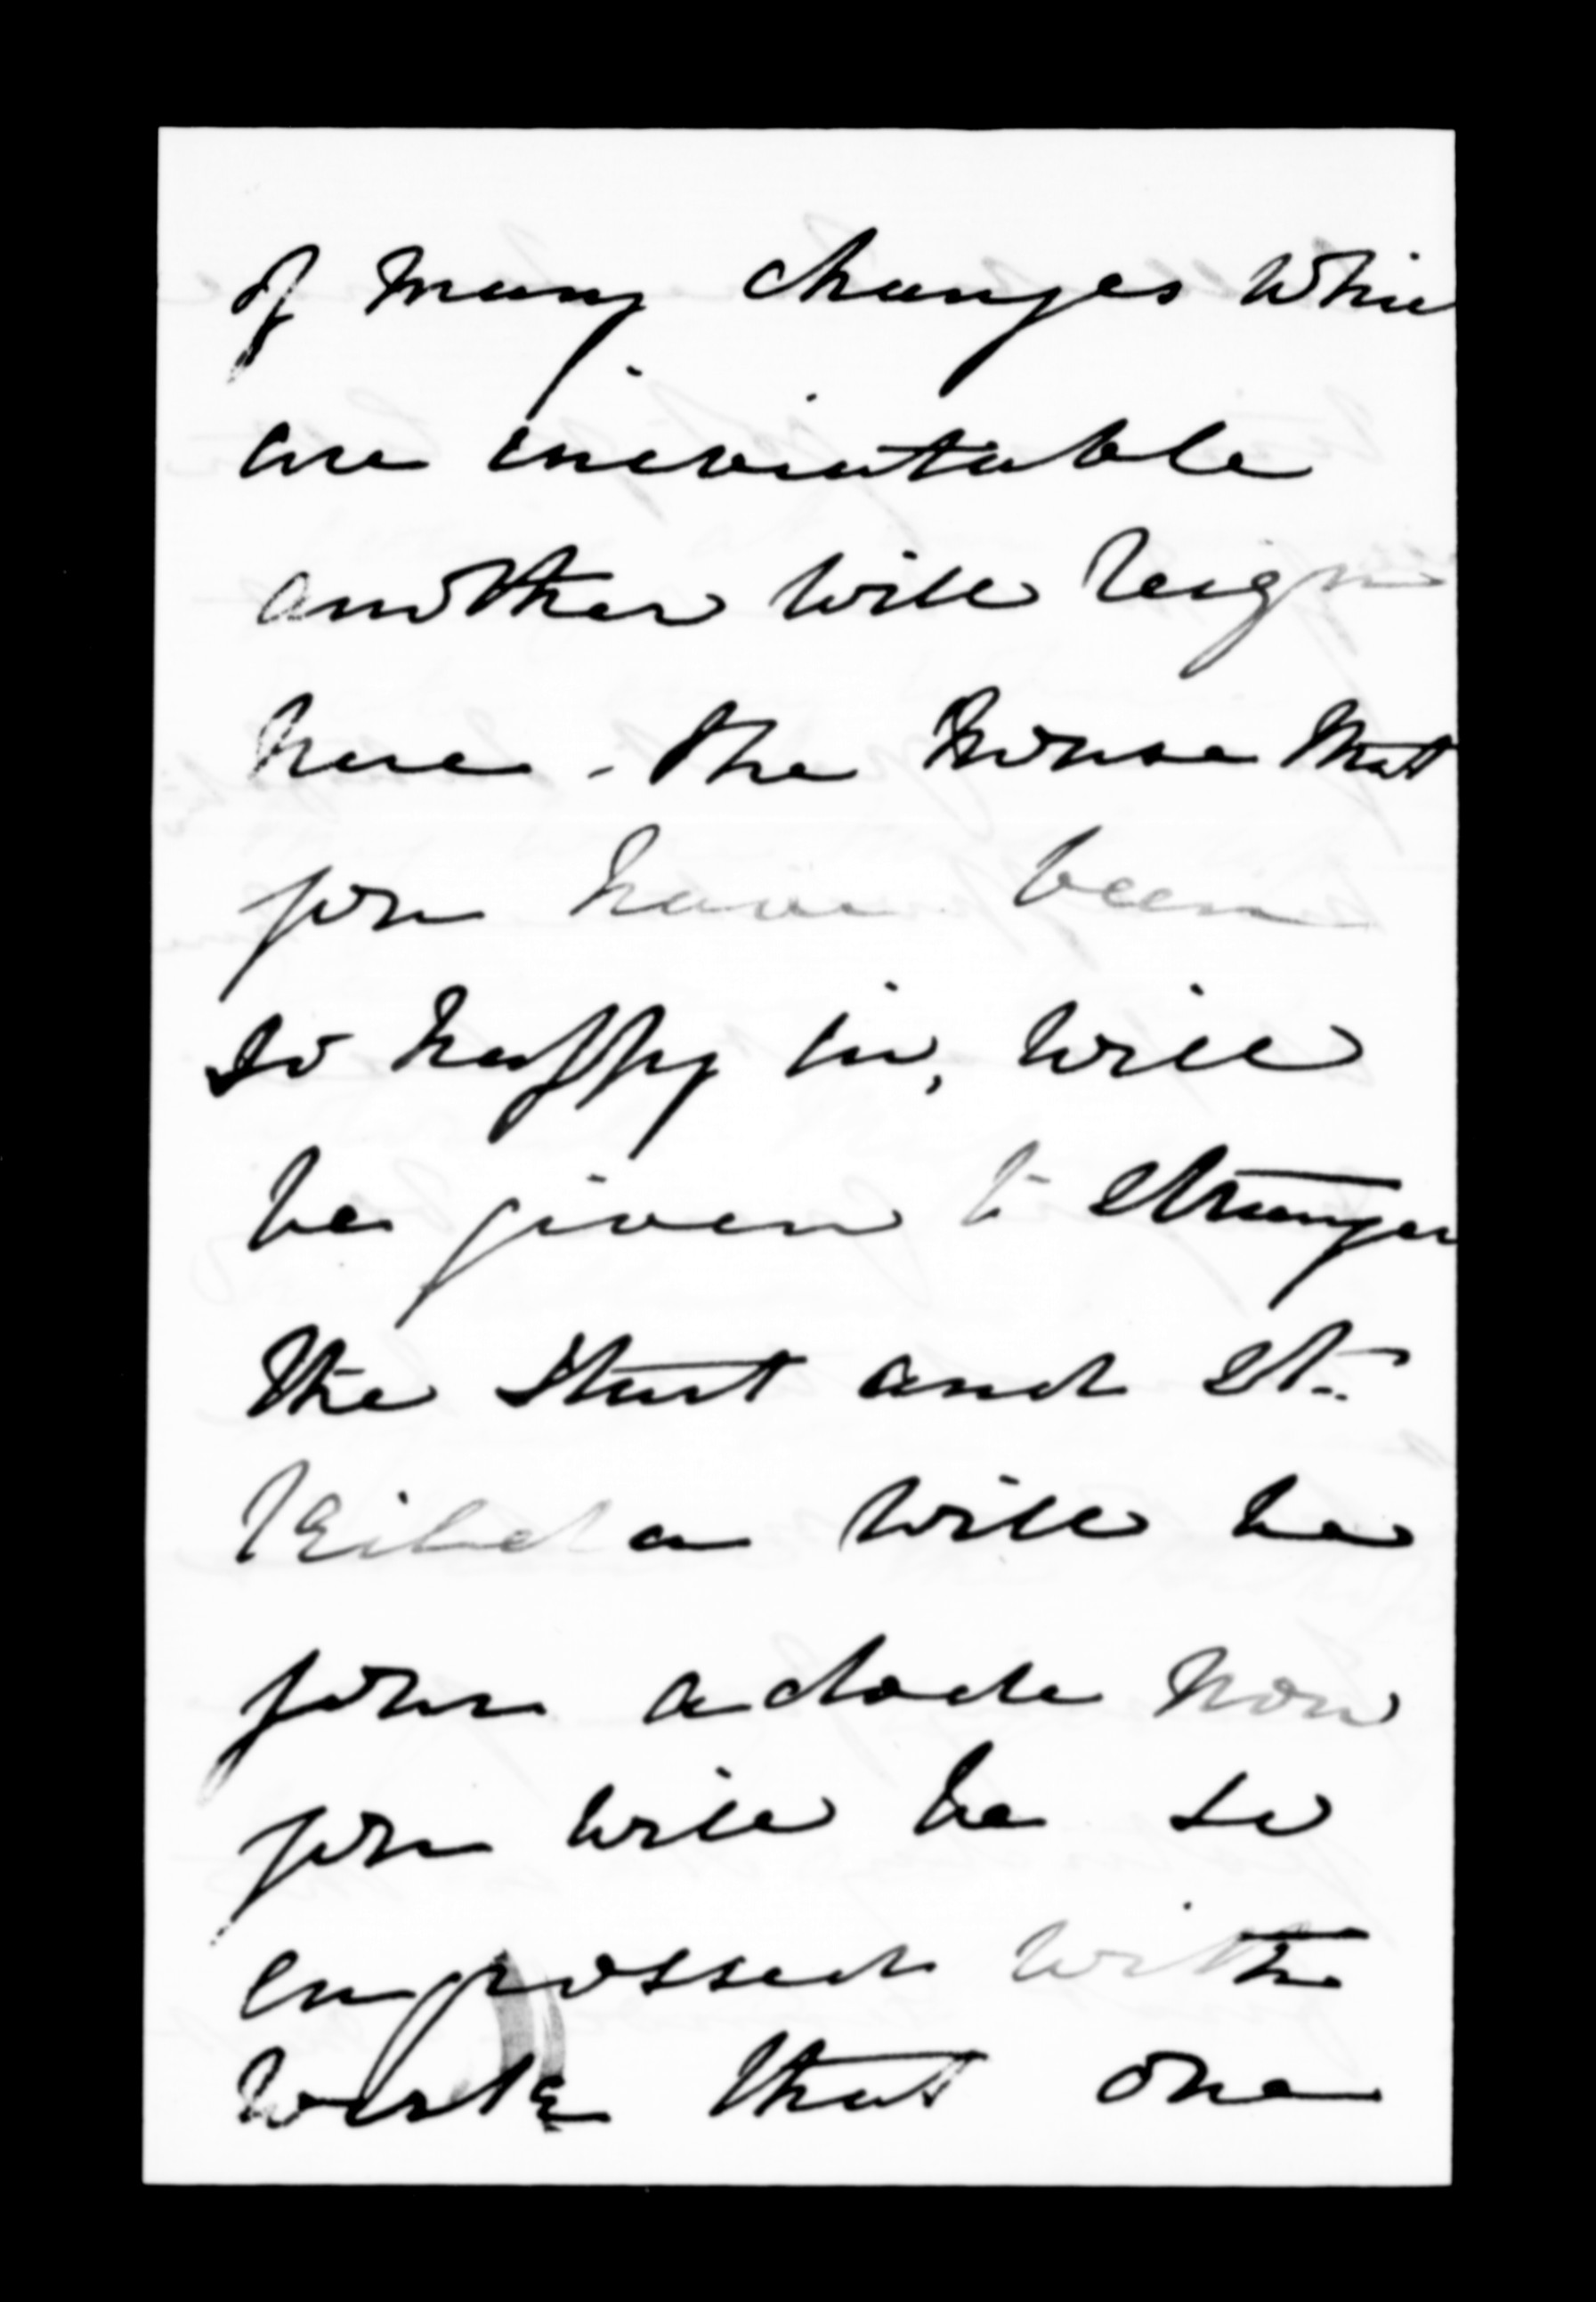 of many changes whic
are ineviatable
another will reign
here - the house that
you have been
so happy in, will
be given to stranger
the and St.
Kilda will be
your abode now
you will be so
engrossed with
work that one